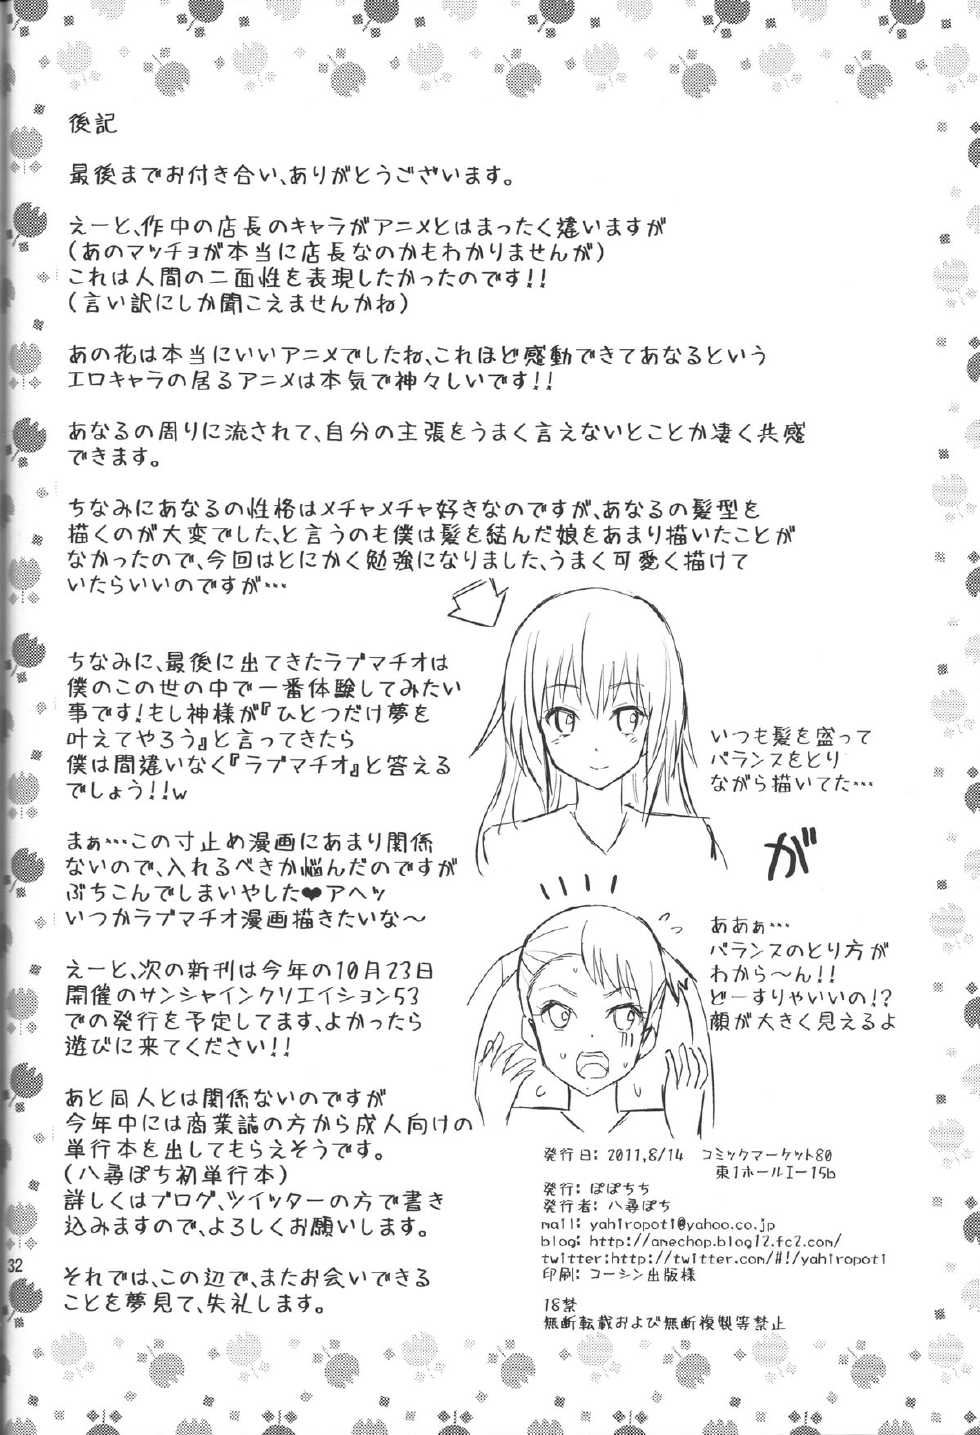 後記
最後までお付き合い、ありがとうございます。
えーと、作中の店長のキャラがアニメとはまったく違いますが
(あのマッチョが本当に店長なのかもわかりませんが)
これは人間の二面性を表現したかったのです!!
(言い訳にしか聞こえませんかね)
あの花は本当にいいアニメでしたね、これほど感動できてあなるという
エロキャラの居るアニメは本気で神々しいです!!
あなるの周りに流されて、自分の主張をうまく言えないとことか凄く共感
できます。
ちなみにあなるの性格はメチャメチャ好きなのですが、あなるの髪型を
描くのが大変でした、と言うのも僕は髪を結んだ娘をあまり描いたことが
なかったので、今回はとにかく勉強になりました、うまく可愛く描けて
いたらいいのですが…
ちなみに、最後に出てきたラブマチオは
僕のこの世の中で一番体験してみたい
事です!もし神様が『ひとつだけ夢を
叶えてやろう』と言ってきたら
僕は間違いなく『ラブマチオ』と答える
でしょう!!w
まぁ…この寸止め漫画にあまり関係
ないので、入れるべきか悩んだのですが
ぶちこんでしまいやした❤アヘッ
いつかラブマチオ漫画描きたいな〜
えーと、次の新刊は今年の10月23日
開催のサンシャインクリエイション53
での発行を予定してます、よかったら
遊びに来てください!!
あと同人とは関係ないのですが
今年中には商業誌の方から成人向けの
単行本を出してもらえそうです。
(八尋ぽち初単行本)
詳しくはブログ、ツイッターの方で書き
込みますので、よろしくお願いします。
それでは、この辺で、またお会いできる
ことを夢見て、失礼します。
いつも髪を盛って
バランスをとり
ながら描いてた…
が
ああぁ…
バランスのとり方が
わから〜ん!!
どーすりゃいいの!?
顔が大きく見えるよ
発行日: 2011,8/14 コミックマーケット80
東1ホールエー15b
発行: ぽぽちち
発行者: 八尋ぽち
mail: yahiropoti@yahoo.co.jp
blog: http://amechop.blog12.fc2.com/
twitter:http://twitter.com/#!/yahiropoti
印刷: コーシン出版様
18禁
無断転載および無断複製等禁止
32